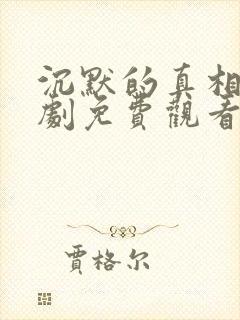 沉默的真相
劇免費觀看
賈格尔